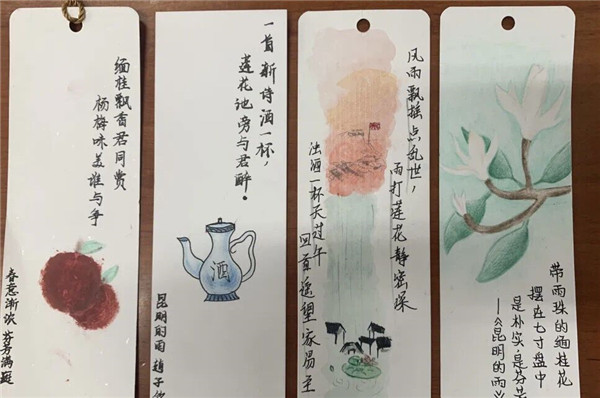 缅桂飘香君同赏
杨梅味美谁与争
春意渐淡 芬芳满
一首新诗酒一杯，
莲花池旁与君醉。
酒
昆明的雨 赵子
风雨飘摇点乱世，
雨打莲花静密躁
浊酒一杯天过午
回首遥望家易至
带雨珠的缅桂花
摆在七寸盘中
是朴实，是芬芳
——《昆明的雨》